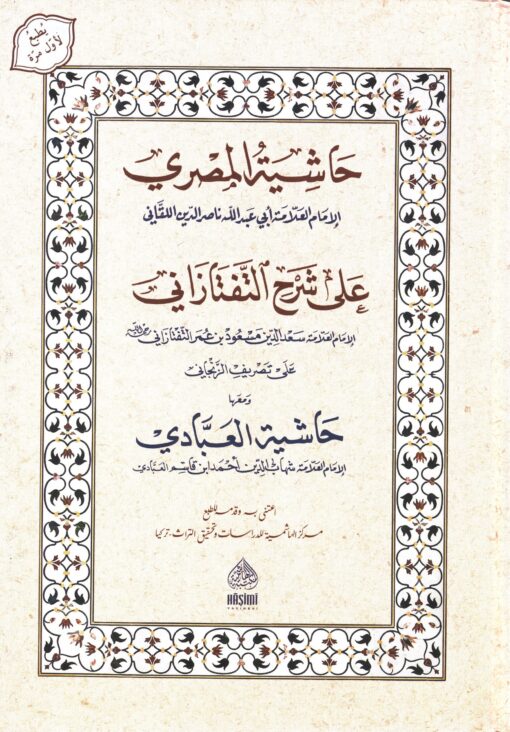 يطبع
لأول مرة
حاشية المصري
الإمام العلامة أبي عبد الله ناصر الدين اللقاني
على شرح التفتازاني
الإمام العلامة سعد الدين مسعود بن عمر التفتازاني
على تصريف الزنجاني
ومعها
حاشية العبادي
الإمام العلامة شهاب الدين أحمد ابن قاسم العبادي
اعتنى به وقدمه للطبع
مركز الهاشمية للدراسات وتحقيق التراث، تركيا
HÂŞİMİ
YAYINEVİ